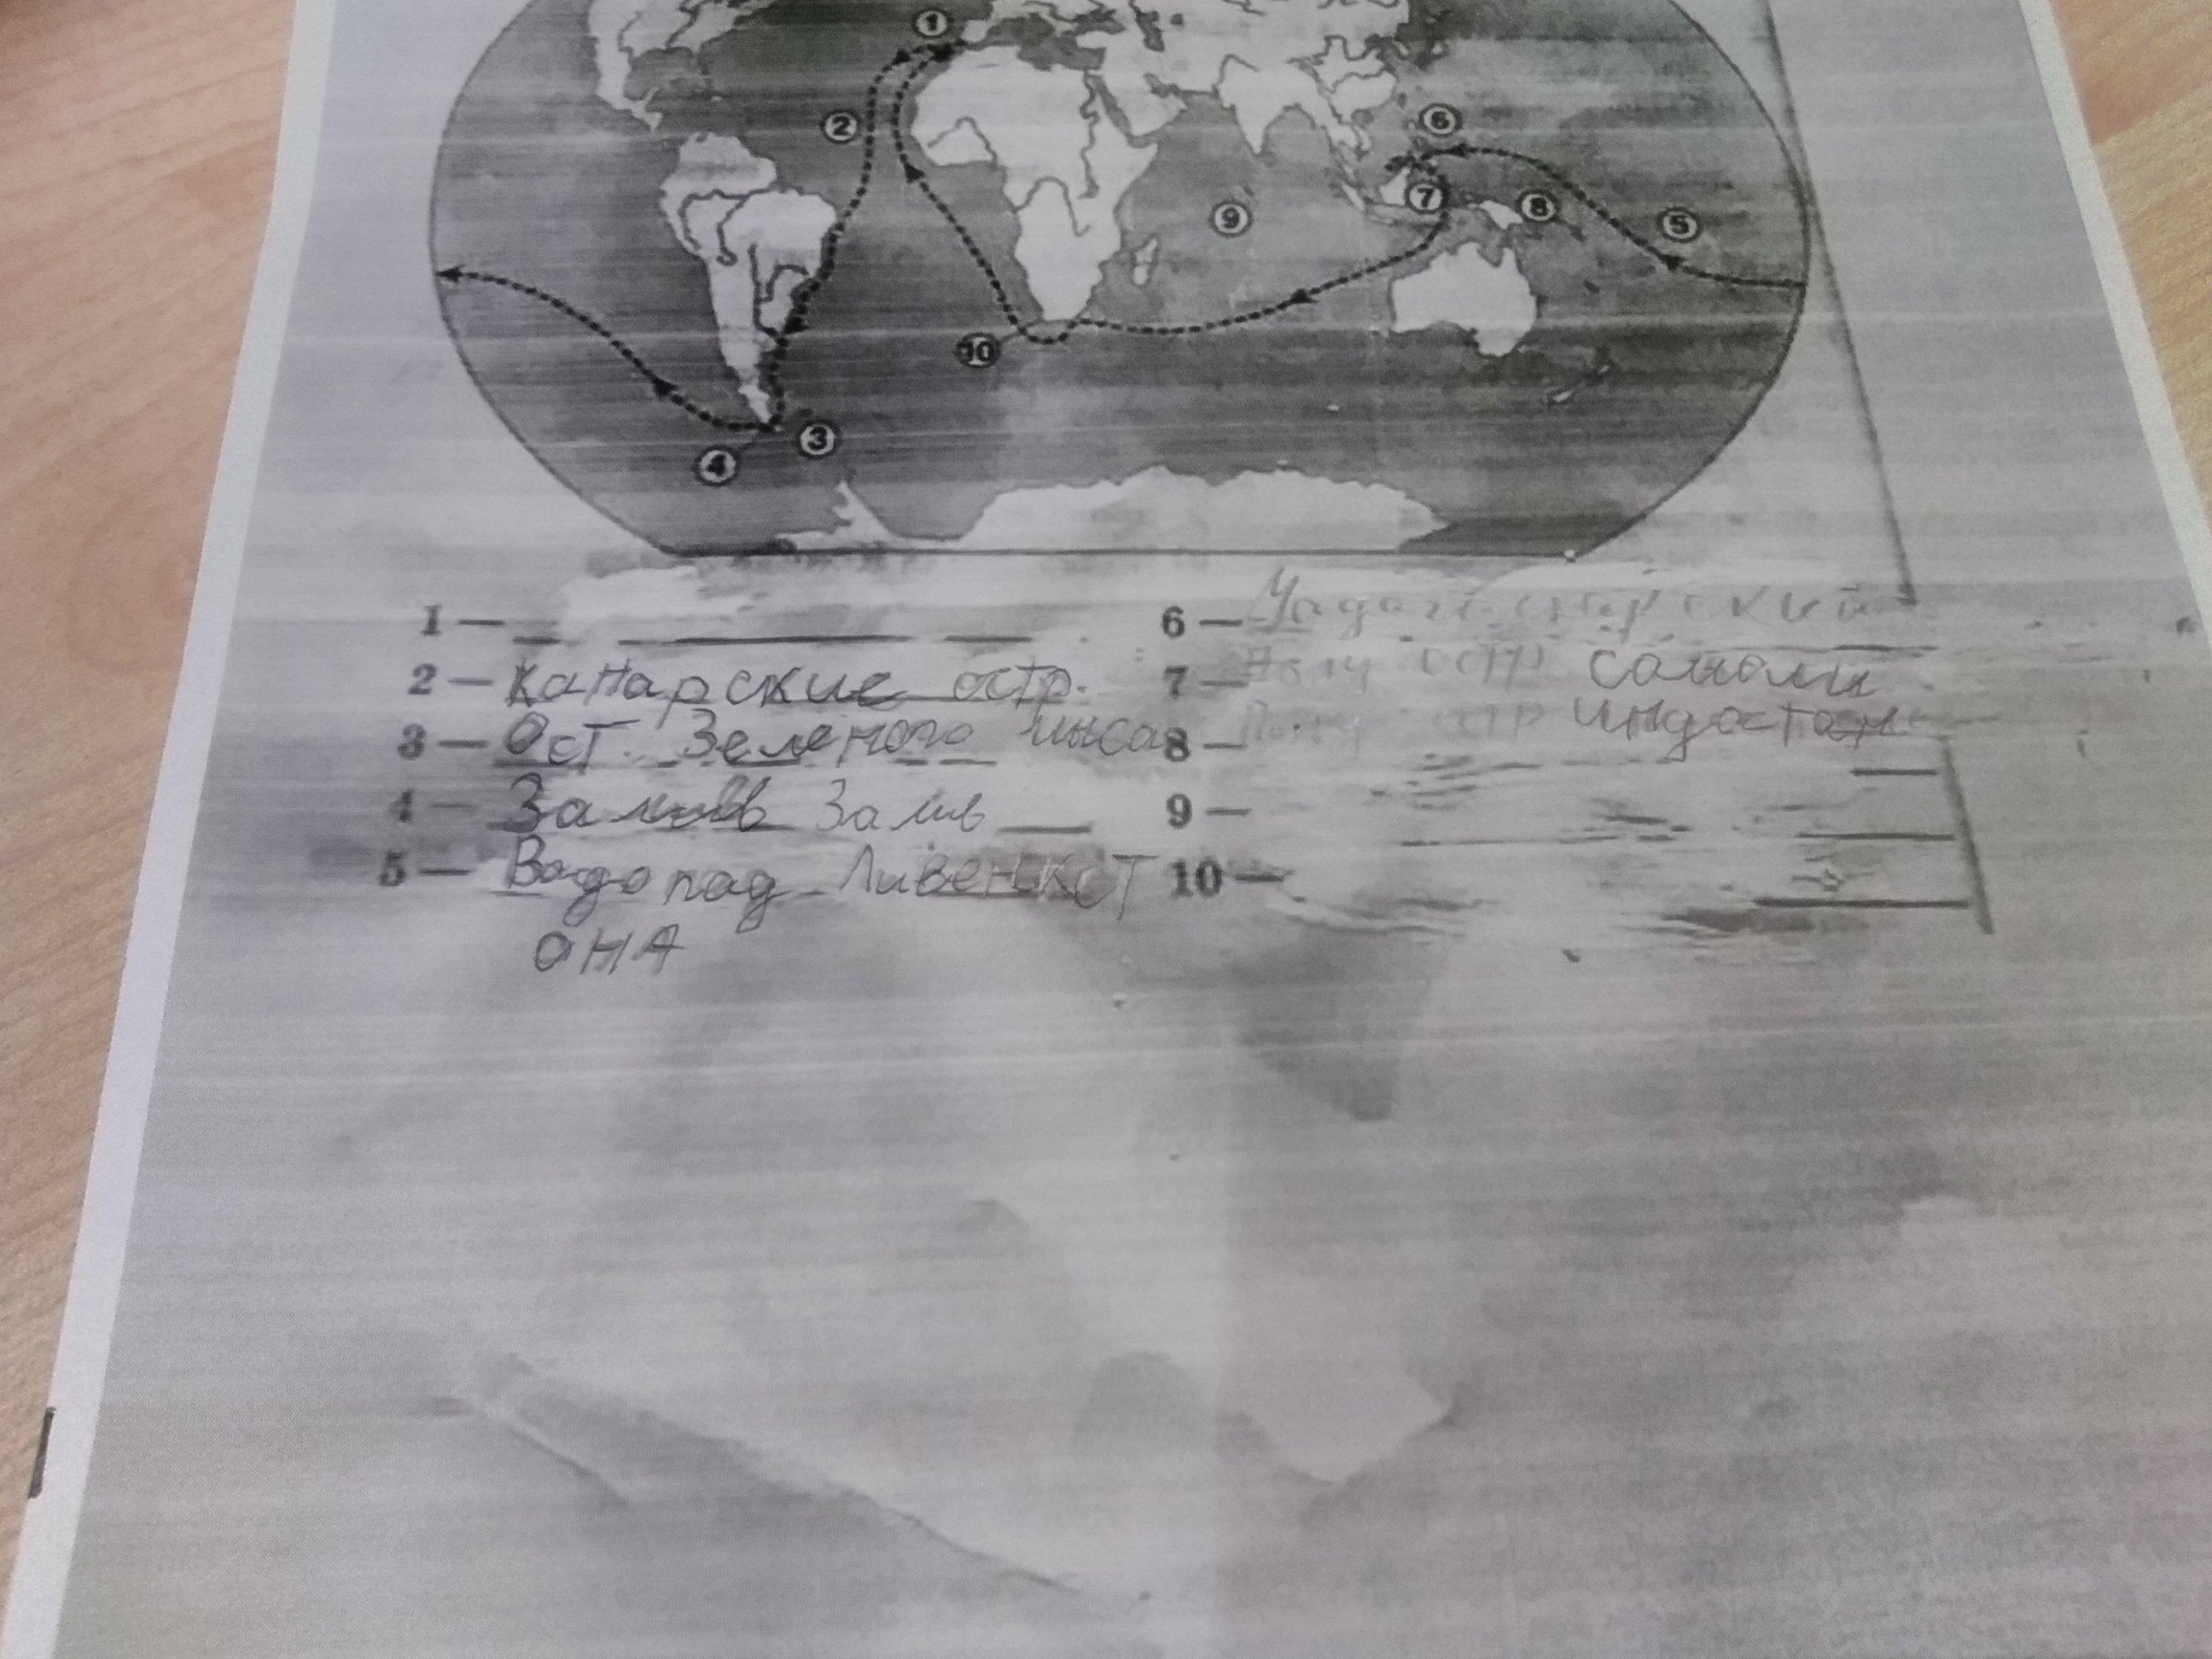 1
2
3
4
5
6
7
8
9
10
1 —
2 — Канарские остр.
3 — Ост. Зеленого мыса
4 — Залив Залив
5 — Водопад Ливенкст
она
6 — Мадагаскарский
7 — Полу остр сомали
8 — Полу остр индостан
9 —
10 —